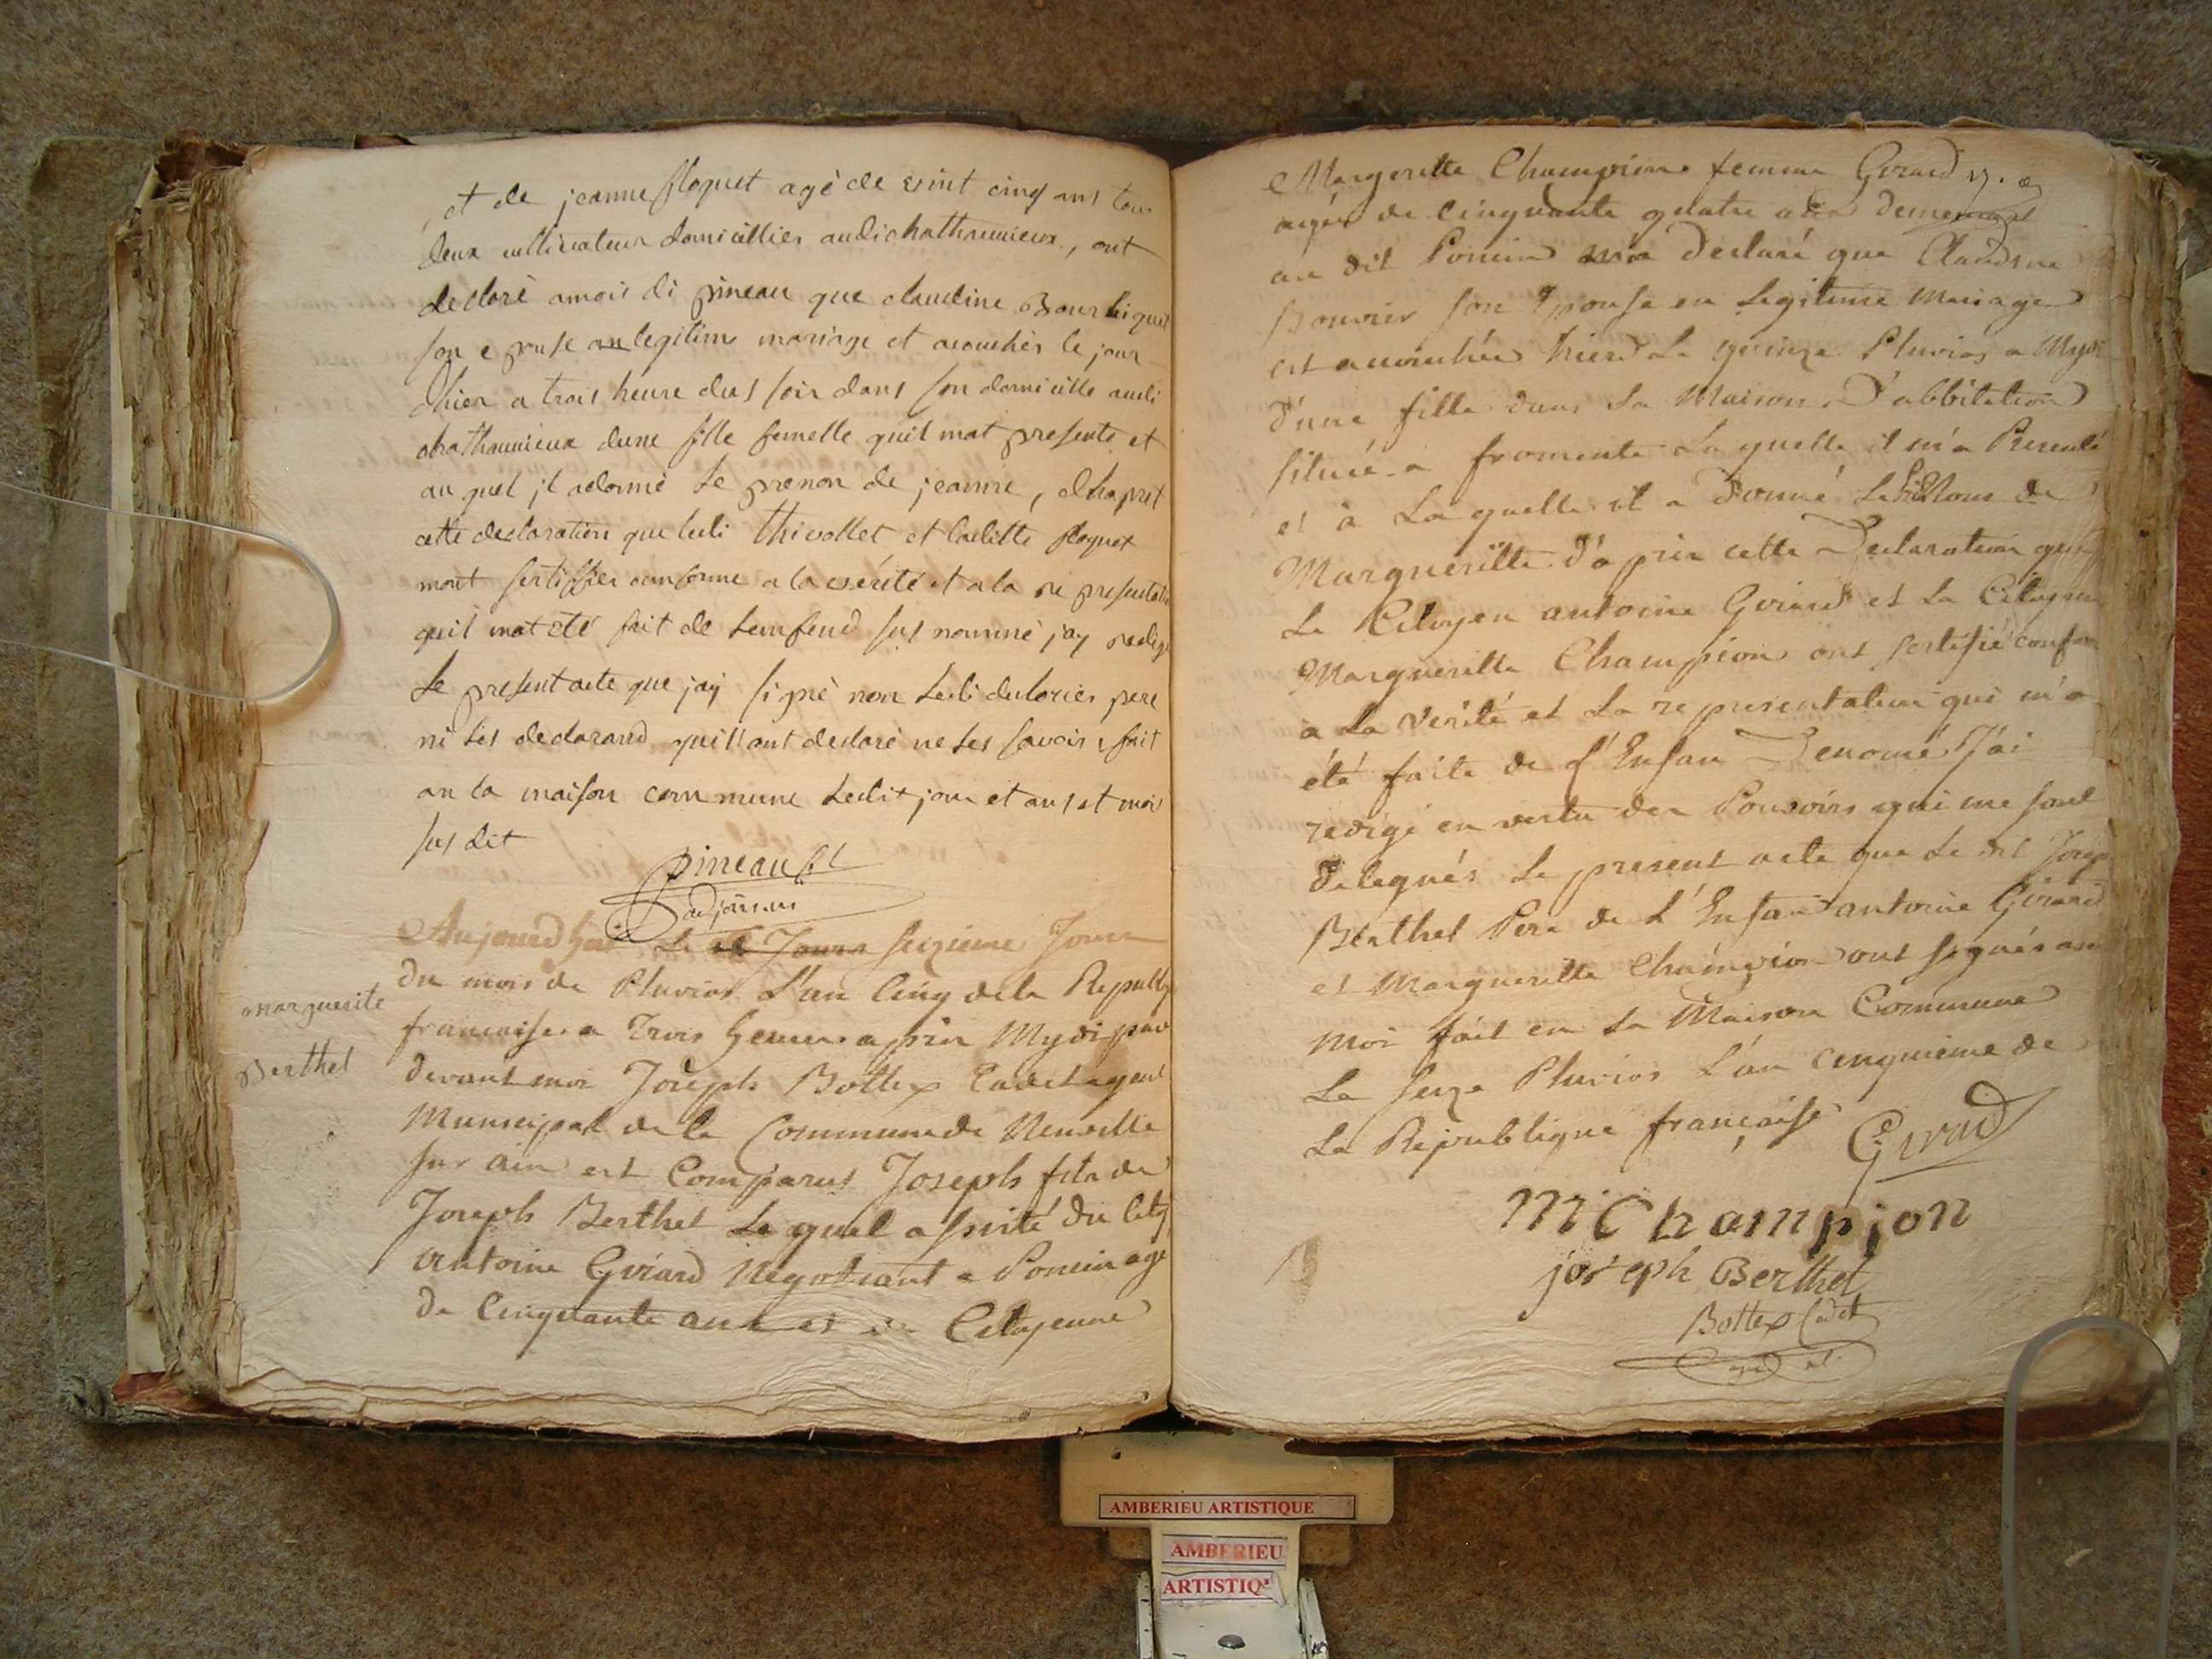 et de jeanne ploquet agé de vint cinq ans tous
deux cultivateur domicillies audichathaunieux, ont
declaré amoit di pineau que claudine Bourbiquet
son epouse an legitime mariage et acouchès le jour
dhier a trois heure dus soir dans son domicille audi
chathaunieux dune fille femelle quil mat presente et
au quel jl adonnè le prenon de jeanne, dhaprest
cette declaration que ledi thivollet et laditte ploquet
mont sertiffier conforme a la vérité et a la re presentation
quil mat été fait de lemfend sus nommè jay redige
le present acte que jay signè non ledi thivolier pere
ni les declarand quil ont declaré ne les savoir, fait
an la maison commune ledit jour et ans et mois
sus dit
pineau
adjoint
marguerite
Berthet
Aujourd'hui le Jours seizieme Jour
du mois de Pluvios L'an Cinq de la Republiq
francaise a Trois heures a prir Mydi par
devant moi Joseph Bottex Cadet agent
Municipal de la Commune de Neuville
sur ain est Comparus Joseph fils de
Joseph Berthet Le quel assisté du City
antoine Girard Negotiant a Poncin agé
de Cinquante ans et de Citoyenne
Margeritte Champion femme Girard
agée de Cinquante quatre ans demeurant
au dit Poncin m'a declaré que Claudine
Bouvier son Epouse en Legitime Mariage
est accouchée hierd Le quinze Pluvios a Mydi
d'une fille dans sa Maison D'abbitation
située a fromente La quelle il m'a Presenté
et à La quelle il a donné Le Prénom de
Margueritte. d'a prir cette Declaration que
Le Citoyen antoine Girard et La Citoyenne
Margueritte Champion ont sertifié confor
à La Vérité et La representation qui m'a
été faite de L'Enfan Denomé J'ai
redigé en vertu des Pouvoirs qui me sont
delegués Le present acte que Le dit Josep
Berthet Pere de L'Enfant antoine Girard
et Margueritte Champion ont signés avec
Moi fait en La Maison Commune
Le Seize Pluvios L'an Cinquieme de
La Republique française
Girard
M Champion
joseph Berthet
Bottex Cadet
AMBERIEU ARTISTIQUE
AMBERIEU
ARTISTIQ